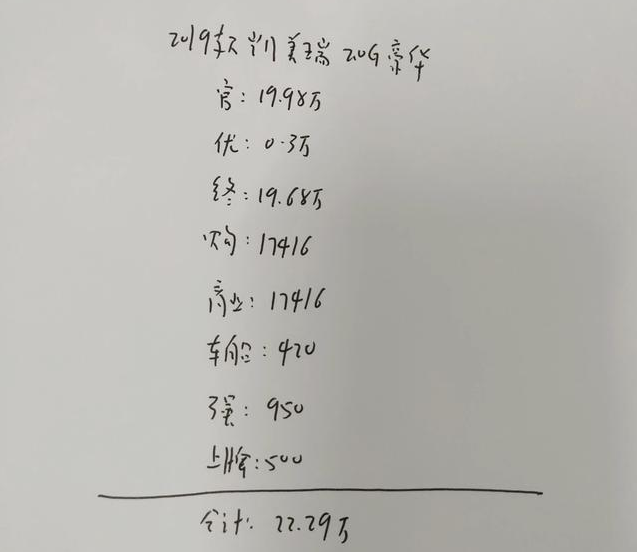 2019款凯美瑞 2.0G 豪华
官: 19.98万
优: 0.3万
终: 19.68万
购: 17416
商业: 17416
车船: 420
强: 950
上牌: 500
合计: 22.29万